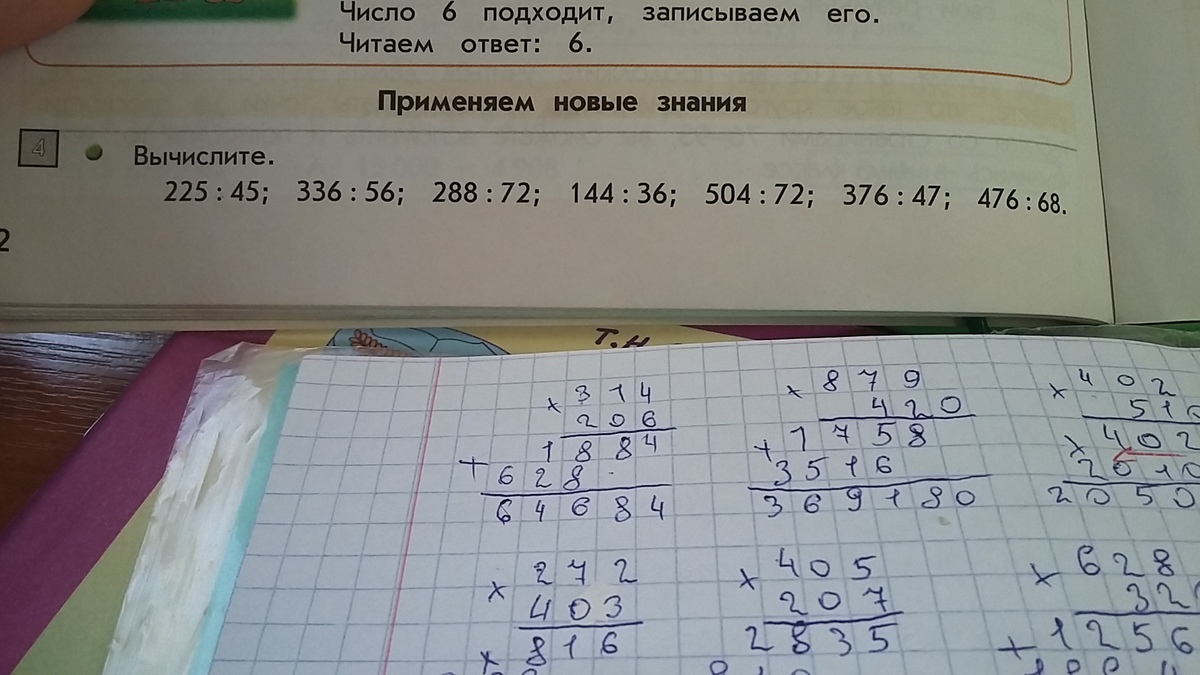 Число 6 подходит, записываем его.
Читаем ответ: 6.
Применяем новые знания
4 Вычислите.
225 : 45; 336 : 56; 288 : 72; 144 : 36; 504 : 72; 376 : 47; 476 : 68.
2
Т.Н
× 314 × 879 × 402
206 420 51
1884 + 1758 × 402
+ 628 3516 2010
64684 369180 2050
× 272 × 405 × 628
403 207 32
× 816 2835 + 1256